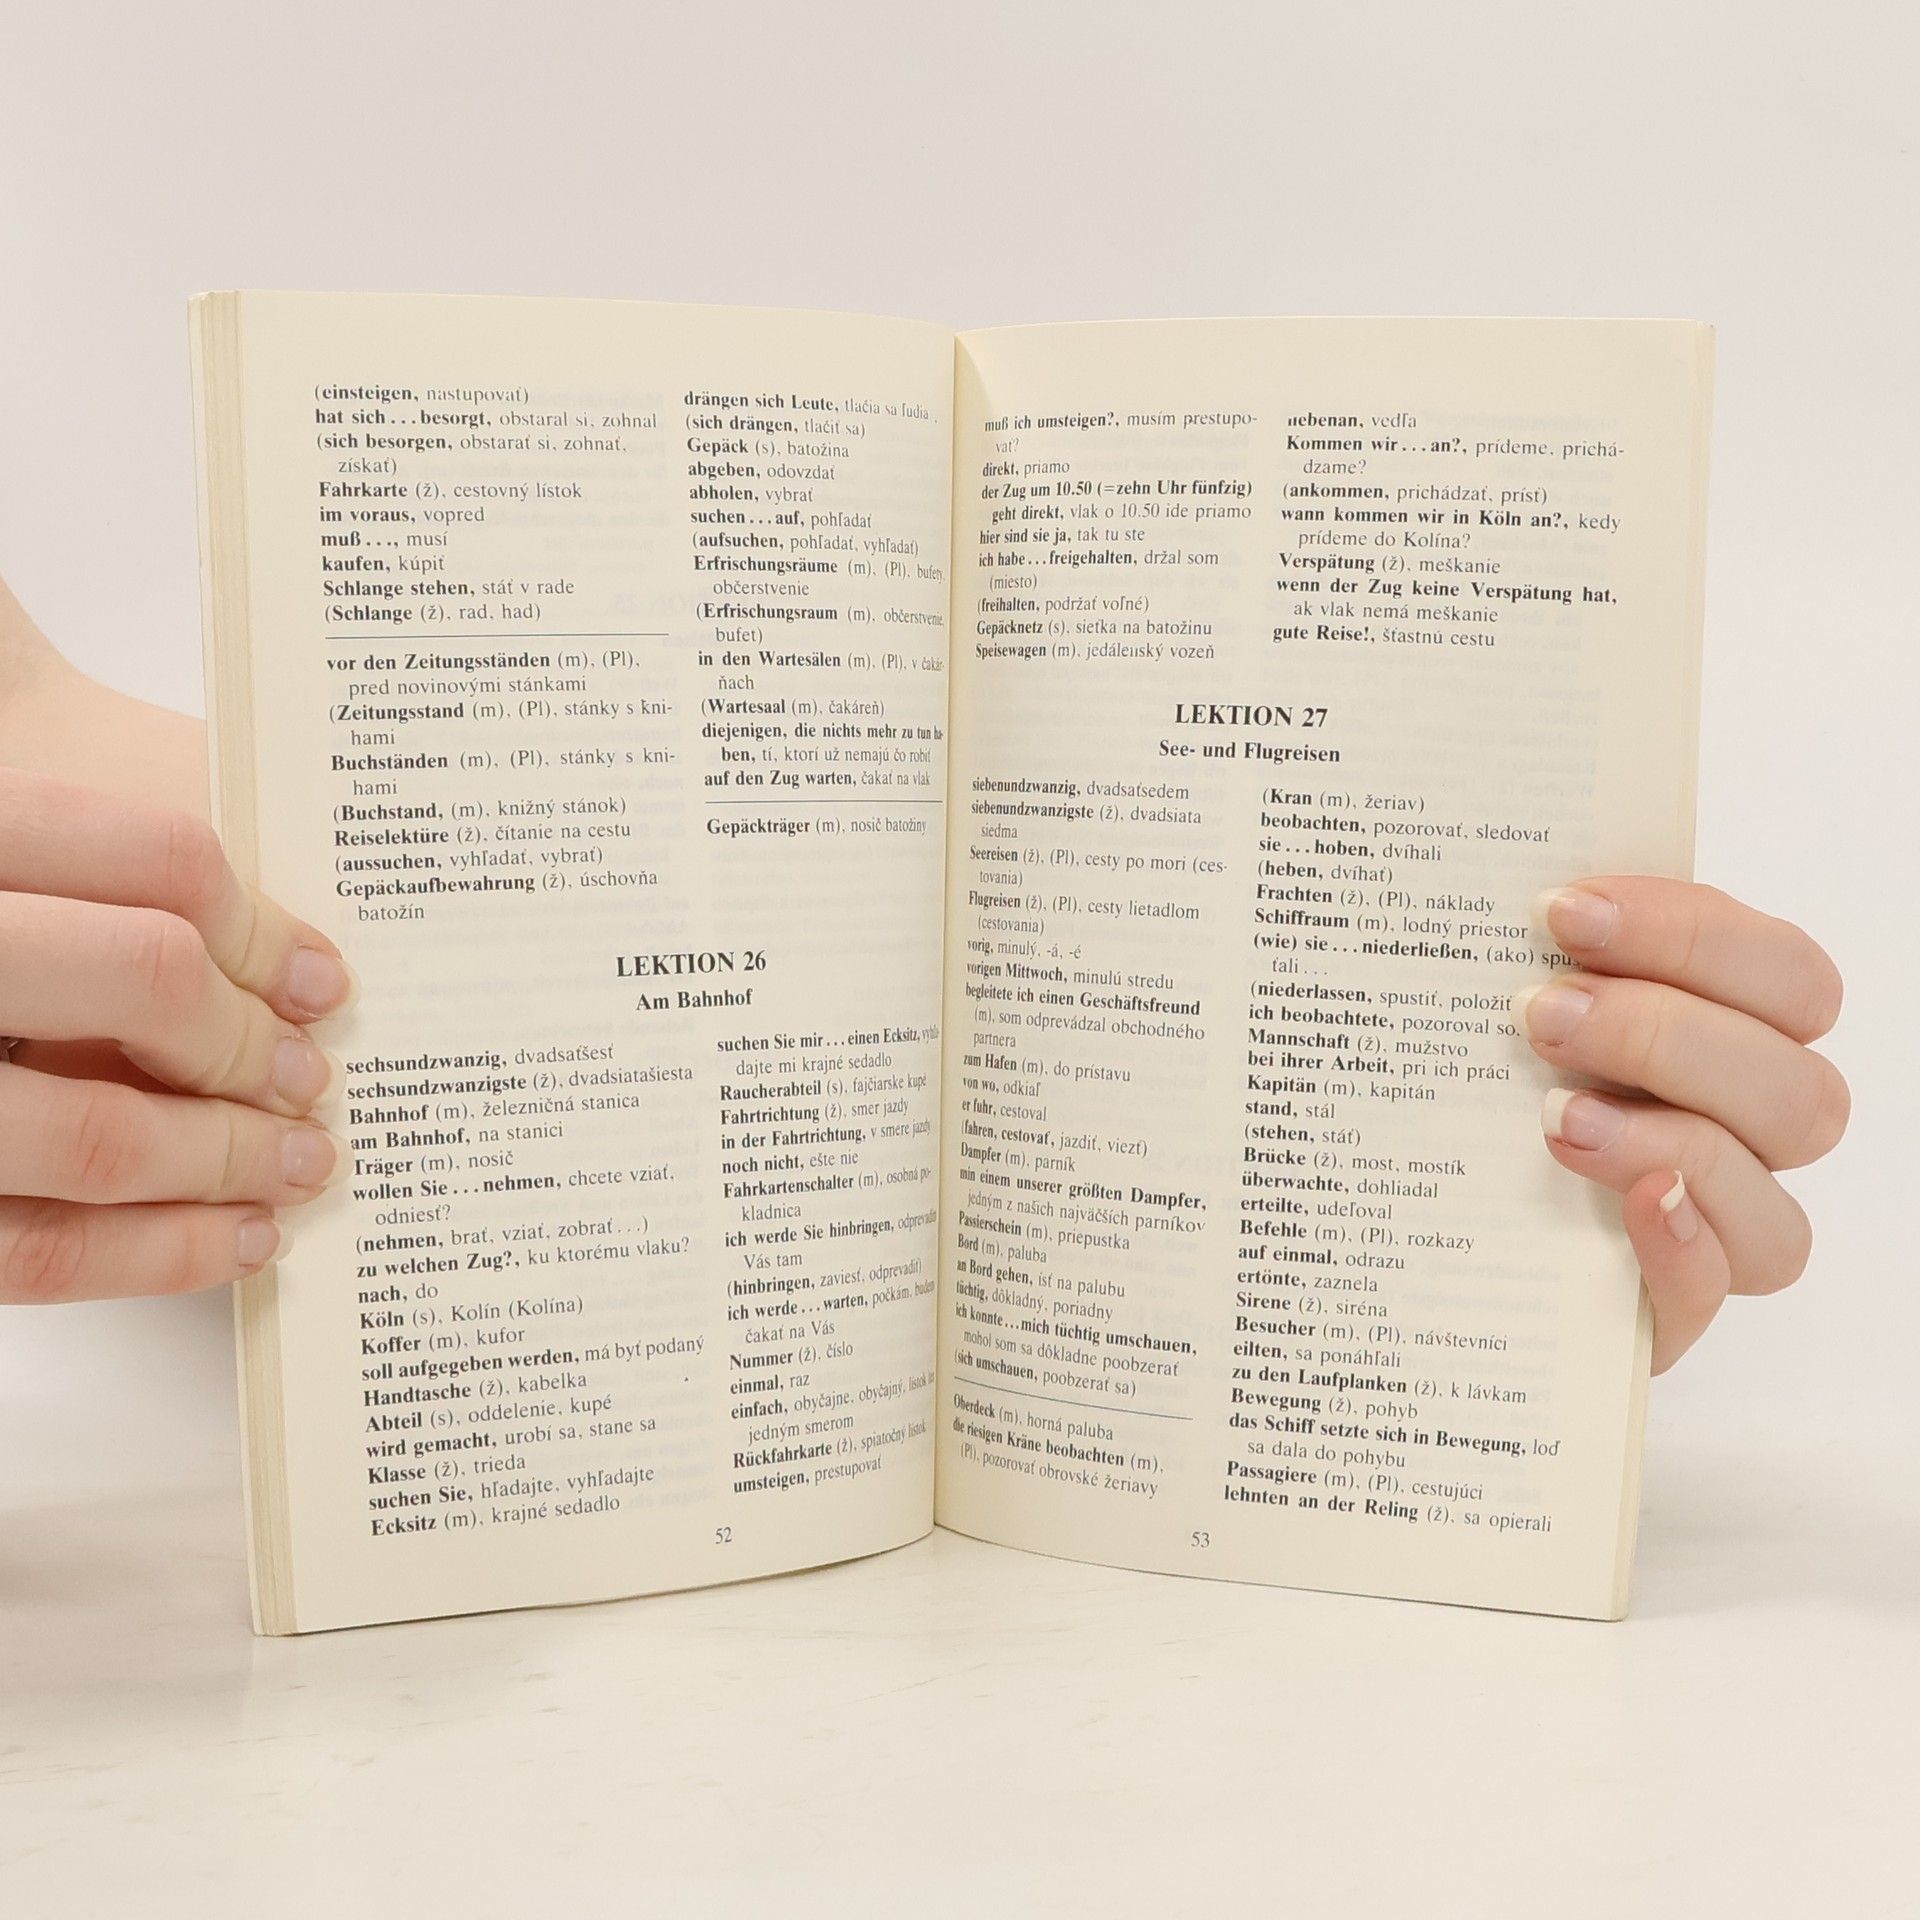 (einsteigen, nastupovať)
hat sich...besorgt, obstaral si, zohnal
(sich besorgen, obstarať si, zohnať,
získať)
Fahrkarte (ž), cestovný lístok
im voraus, vopred
muß..., musí
kaufen, kúpiť
Schlange stehen, stáť v rade
(Schlange (ž), rad, had)
vor den Zeitungsständen (m), (Pl),
pred novinovými stánkami
(Zeitungsstand (m), (Pl), stánky s kni-
hami
Buchständen (m), (Pl), stánky s kni-
hami
(Buchstand, (m), knižný stánok)
Reiselektüre (ž), čítanie na cestu
(aussuchen, vyhľadať, vybrať)
Gepäckaufbewahrung (ž), úschovňa
batožín
drängen sich Leute, tlačia sa ľudia
(sich drängen, tlačiť sa)
Gepäck (s), batožina
abgeben, odovzdať
abholen, vybrať
suchen...auf, pohľadať
(aufsuchen, pohľadať, vyhľadať)
Erfrischungsräume (m), (Pl), bufety,
občerstvenie
(Erfrischungsraum (m), občerstvenie,
bufet)
in den Wartesälen (m), (Pl), v čakár-
ňach
(Wartesaal (m), čakáreň)
diejenigen, die nichts mehr zu tun ha-
ben, tí, ktorí už nemajú čo robiť
auf den Zug warten, čakať na vlak
Gepäckträger (m), nosič batožiny
LEKTION 26
Am Bahnhof
sechsundzwanzig, dvadsaťšesť
sechsundzwanzigste (ž), dvadsiatašiesta
Bahnhof (m), železničná stanica
am Bahnhof, na stanici
Träger (m), nosič
wollen Sie...nehmen, chcete vziať,
odniesť?
(nehmen, brať, vziať, zobrať...)
zu welchen Zug?, ku ktorému vlaku?
nach, do
Köln (s), Kolín (Kolína)
Koffer (m), kufor
soll aufgegeben werden, má byť podaný
Handtasche (ž), kabelka
Abteil (s), oddelenie, kupé
wird gemacht, urobí sa, stane sa
Klasse (ž), trieda
suchen Sie, hľadajte, vyhľadajte
Ecksitz (m), krajné sedadlo
suchen Sie mir...einen Ecksitz, vyhľa-
dajte mi krajné sedadlo
Raucherabteil (s), fajčiarske kupé
Fahrtrichtung (ž), smer jazdy
in der Fahrtrichtung, v smere jazdy
noch nicht, ešte nie
Fahrkartenschalter (m), osobná po-
kladnica
ich werde Sie hinbringen, odprevadím
Vás tam
(hinbringen, zaviesť, odprevadiť)
ich werde...warten, počkám, budem
čakať na Vás
Nummer (ž), číslo
einmal, raz
einfach, obyčajne, obyčajný, lístok len
jedným smerom
Rückfahrkarte (ž), spiatočný lístok
umsteigen, prestupovať
52
muß ich umsteigen?, musím prestupo-
vať?
direkt, priamo
der Zug um 10.50 (=zehn Uhr fünfzig)
geht direkt, vlak o 10.50 ide priamo
hier sind sie ja, tak tu ste
ich habe...freigehalten, držal som
(miesto)
(freihalten, podržať voľné)
Gepäcknetz (s), sieťka na batožinu
Speisewagen (m), jedálenský vozeň
nebenan, vedľa
Kommen wir...an?, prídeme, prichá-
dzame?
(ankommen, prichádzať, prísť)
wann kommen wir in Köln an?, kedy
prídeme do Kolína?
Verspätung (ž), meškanie
wenn der Zug keine Verspätung hat,
ak vlak nemá meškanie
gute Reise!, šťastnú cestu
LEKTION 27
See- und Flugreisen
siebenundzwanzig, dvadsaťsedem
siebenundzwanzigste (ž), dvadsiata
siedma
Seereisen (ž), (Pl), cesty po mori (ces-
tovania)
Flugreisen (ž), (Pl), cesty lietadlom
(cestovania)
vorig, minulý, -á, -é
vorigen Mittwoch, minulú stredu
begleitete ich einen Geschäftsfreund
(m), som odprevádzal obchodného
partnera
zum Hafen (m), do prístavu
von wo, odkiaľ
er fuhr, cestoval
(fahren, cestovať, jazdiť, viezť)
Dampfer (m), parník
min einem unserer größten Dampfer,
jedným z našich najväčších parníkov
Passierschein (m), priepustka
Bord (m), paluba
an Bord gehen, ísť na palubu
tüchtig, dôkladný, poriadny
ich konnte...mich tüchtig umschauen,
mohol som sa dôkladne poobzerať
(sich umschauen, poobzerať sa)
Oberdeck (m), horná paluba
die riesigen Kräne beobachten (m),
(Pl), pozorovať obrovské žeriavy
(Kran (m), žeriav)
beobachten, pozorovať, sledovať
sie...hoben, dvíhali
(heben, dvíhať)
Frachten (ž), (Pl), náklady
Schiffraum (m), lodný priestor
(wie) sie...niederließen, (ako) spúš-
ťali...
(niederlassen, spustiť, položiť
ich beobachtete, pozoroval so
Mannschaft (ž), mužstvo
bei ihrer Arbeit, pri ich práci
Kapitän (m), kapitán
stand, stál
(stehen, stáť)
Brücke (ž), most, mostík
überwachte, dohliadal
erteilte, udeľoval
Befehle (m), (Pl), rozkazy
auf einmal, odrazu
ertönte, zaznela
Sirene (ž), siréna
Besucher (m), (Pl), návštevníci
eilten, sa ponáhľali
zu den Laufplanken (ž), k lávkam
Bewegung (ž), pohyb
das Schiff setzte sich in Bewegung, loď
sa dala do pohybu
Passagiere (m), (Pl), cestujúci
lehnten an der Reling (ž), sa opierali
53